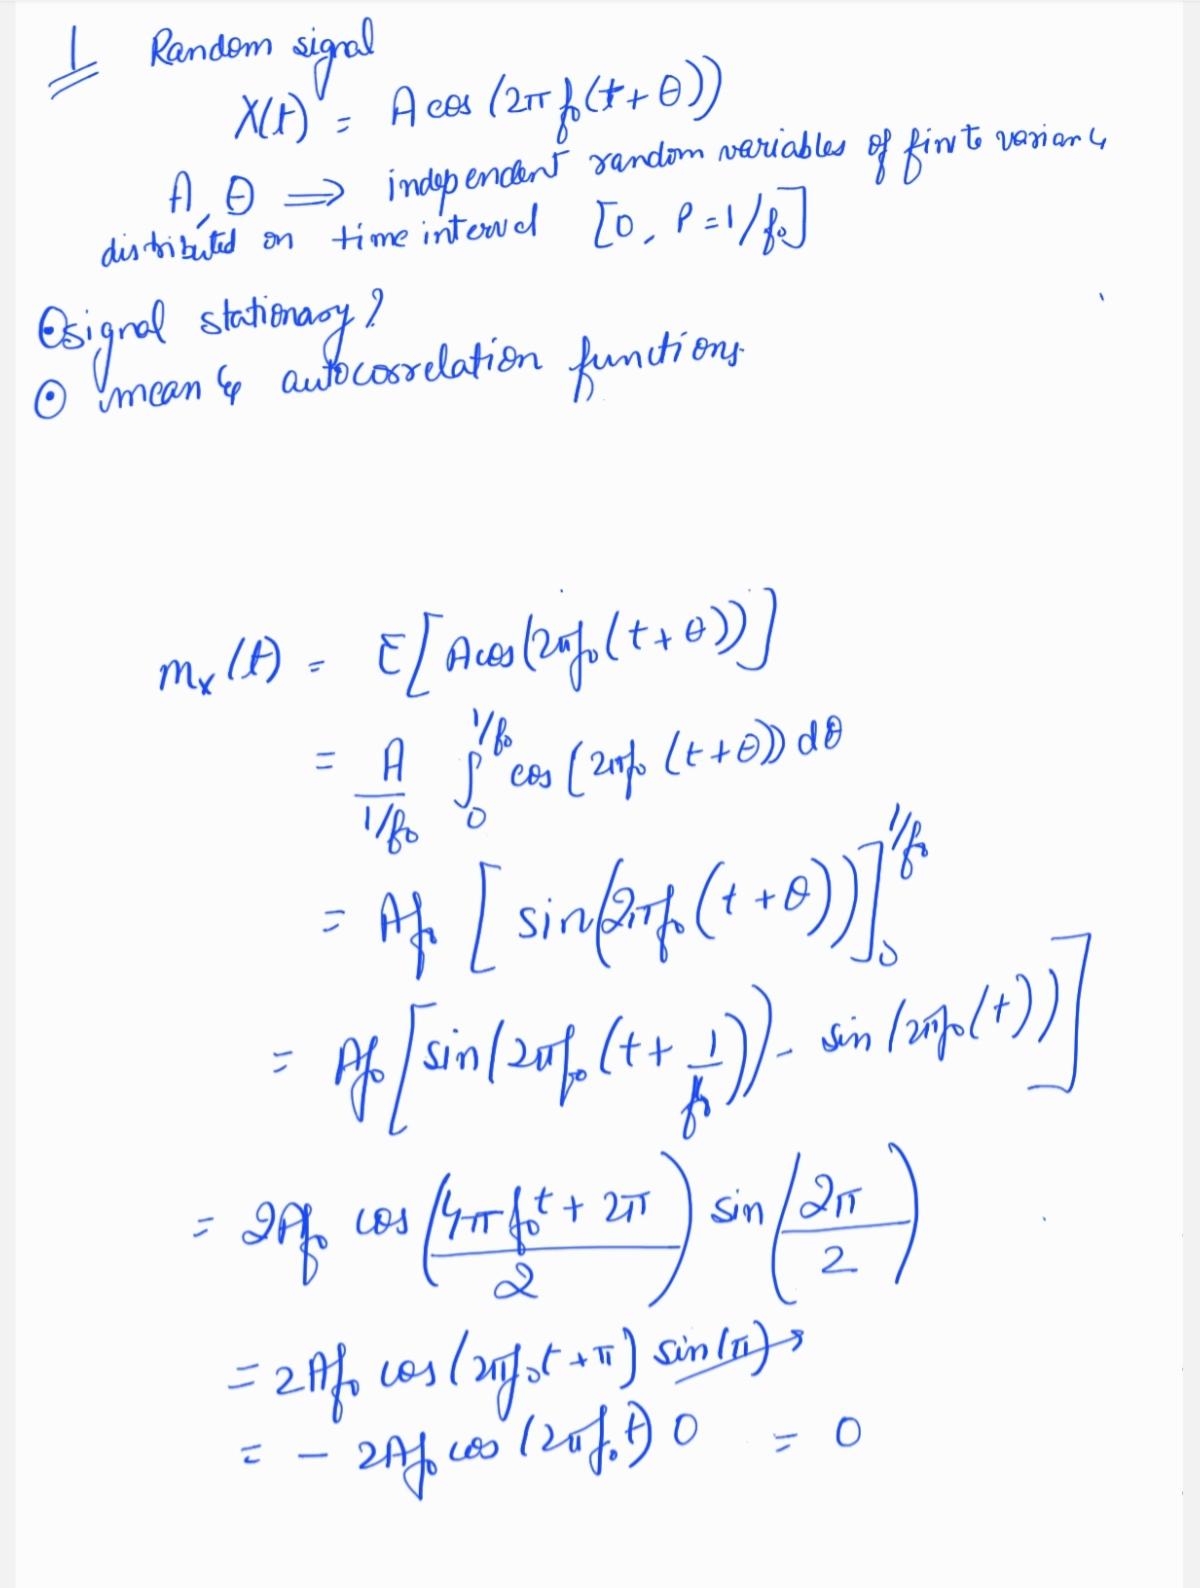 1 Random signal
X(t) = A cos (2π f₀(t+θ))
A, θ ⟹ independent random variables of finite variance
distributed on time interval [0, P=1/f₀]
⊙ signal stationary?
⊙ mean & autocorrelation functions.
mₓ(t) = E[A cos(2πf₀(t+θ))]
= A/(1/f₀) ∫₀^(1/f₀) cos(2πf₀(t+θ)) dθ
= Af₀ [sin(2πf₀(t+θ))]₀^(1/f₀)
= Af₀ [sin(2πf₀(t+1/f₀)) - sin(2πf₀(t))]
= 2Af₀ cos((4πf₀t + 2π)/2) sin(2π/2)
= 2Af₀ cos(2πf₀t + π) sin(π)
= - 2Af₀ cos(2πf₀t) 0 = 0